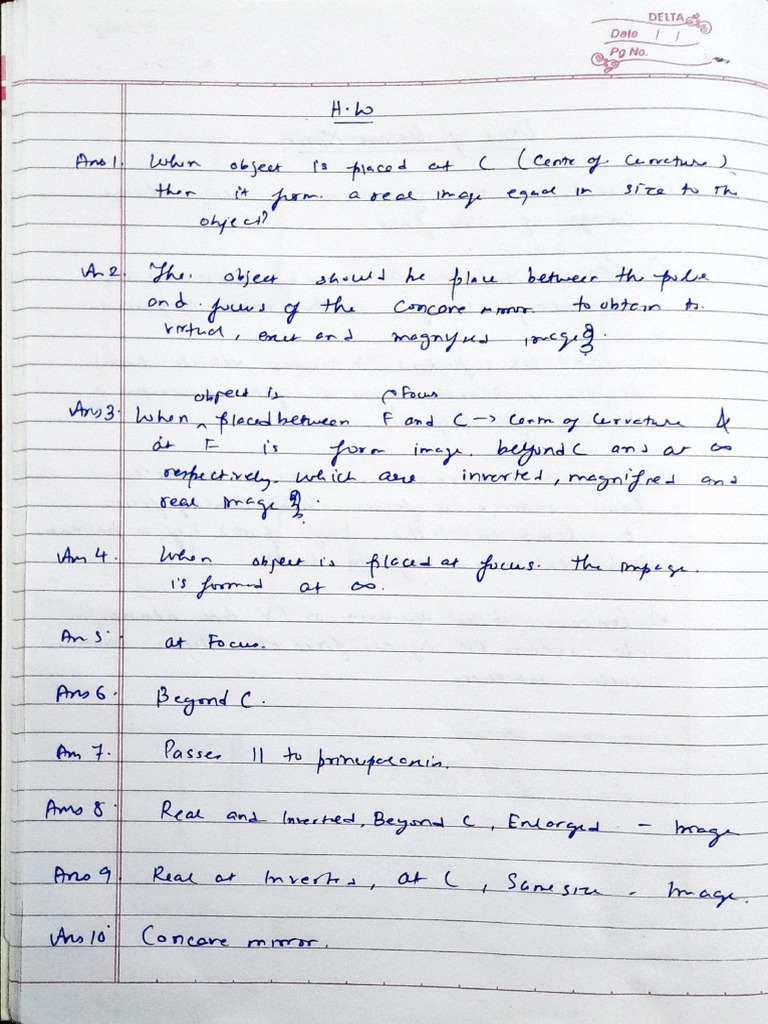 DELTA
Date / /
Pg No.
H.W
Ans 1. When object is placed at C (Centre of Curvature)
then it form. a real image equal in size to the
object?
An 2. The. object should be place between the pole
and focus of the concave mirror to obtain
virtual, erect and magnified image.
object is Focus
Ans 3. When placed between F and C → Centre of Curvature &
at F is form image. beyond C and at ∞
respectively. which are inverted, magnified and
real image.
Ans 4. When object is placed at focus. the impage.
is formed at ∞.
An 5. at Focus.
Ans 6. Beyond C.
Ans 7. Passes || to principal axis.
Ans 8. Real and Inverted, Beyond C, Enlarged - Image
Ans 9. Real at Inverted, at C, Same size - Image.
Ans 10 Concave mirror.